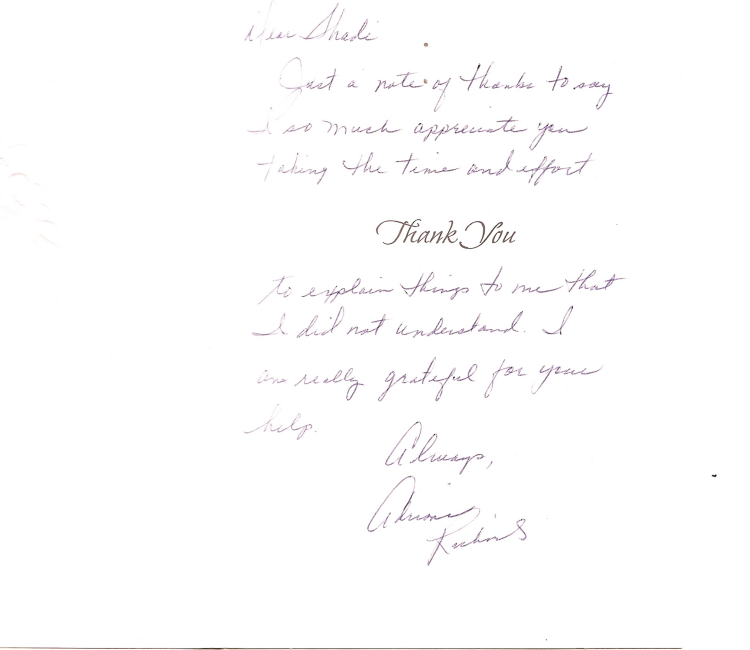 Dear Shadi
Just a note of thanks to say
I so much appreciate you
taking the time and effort
Thank You
to explain things to me that
I did not understand. I
am really grateful for your
help.
Always,